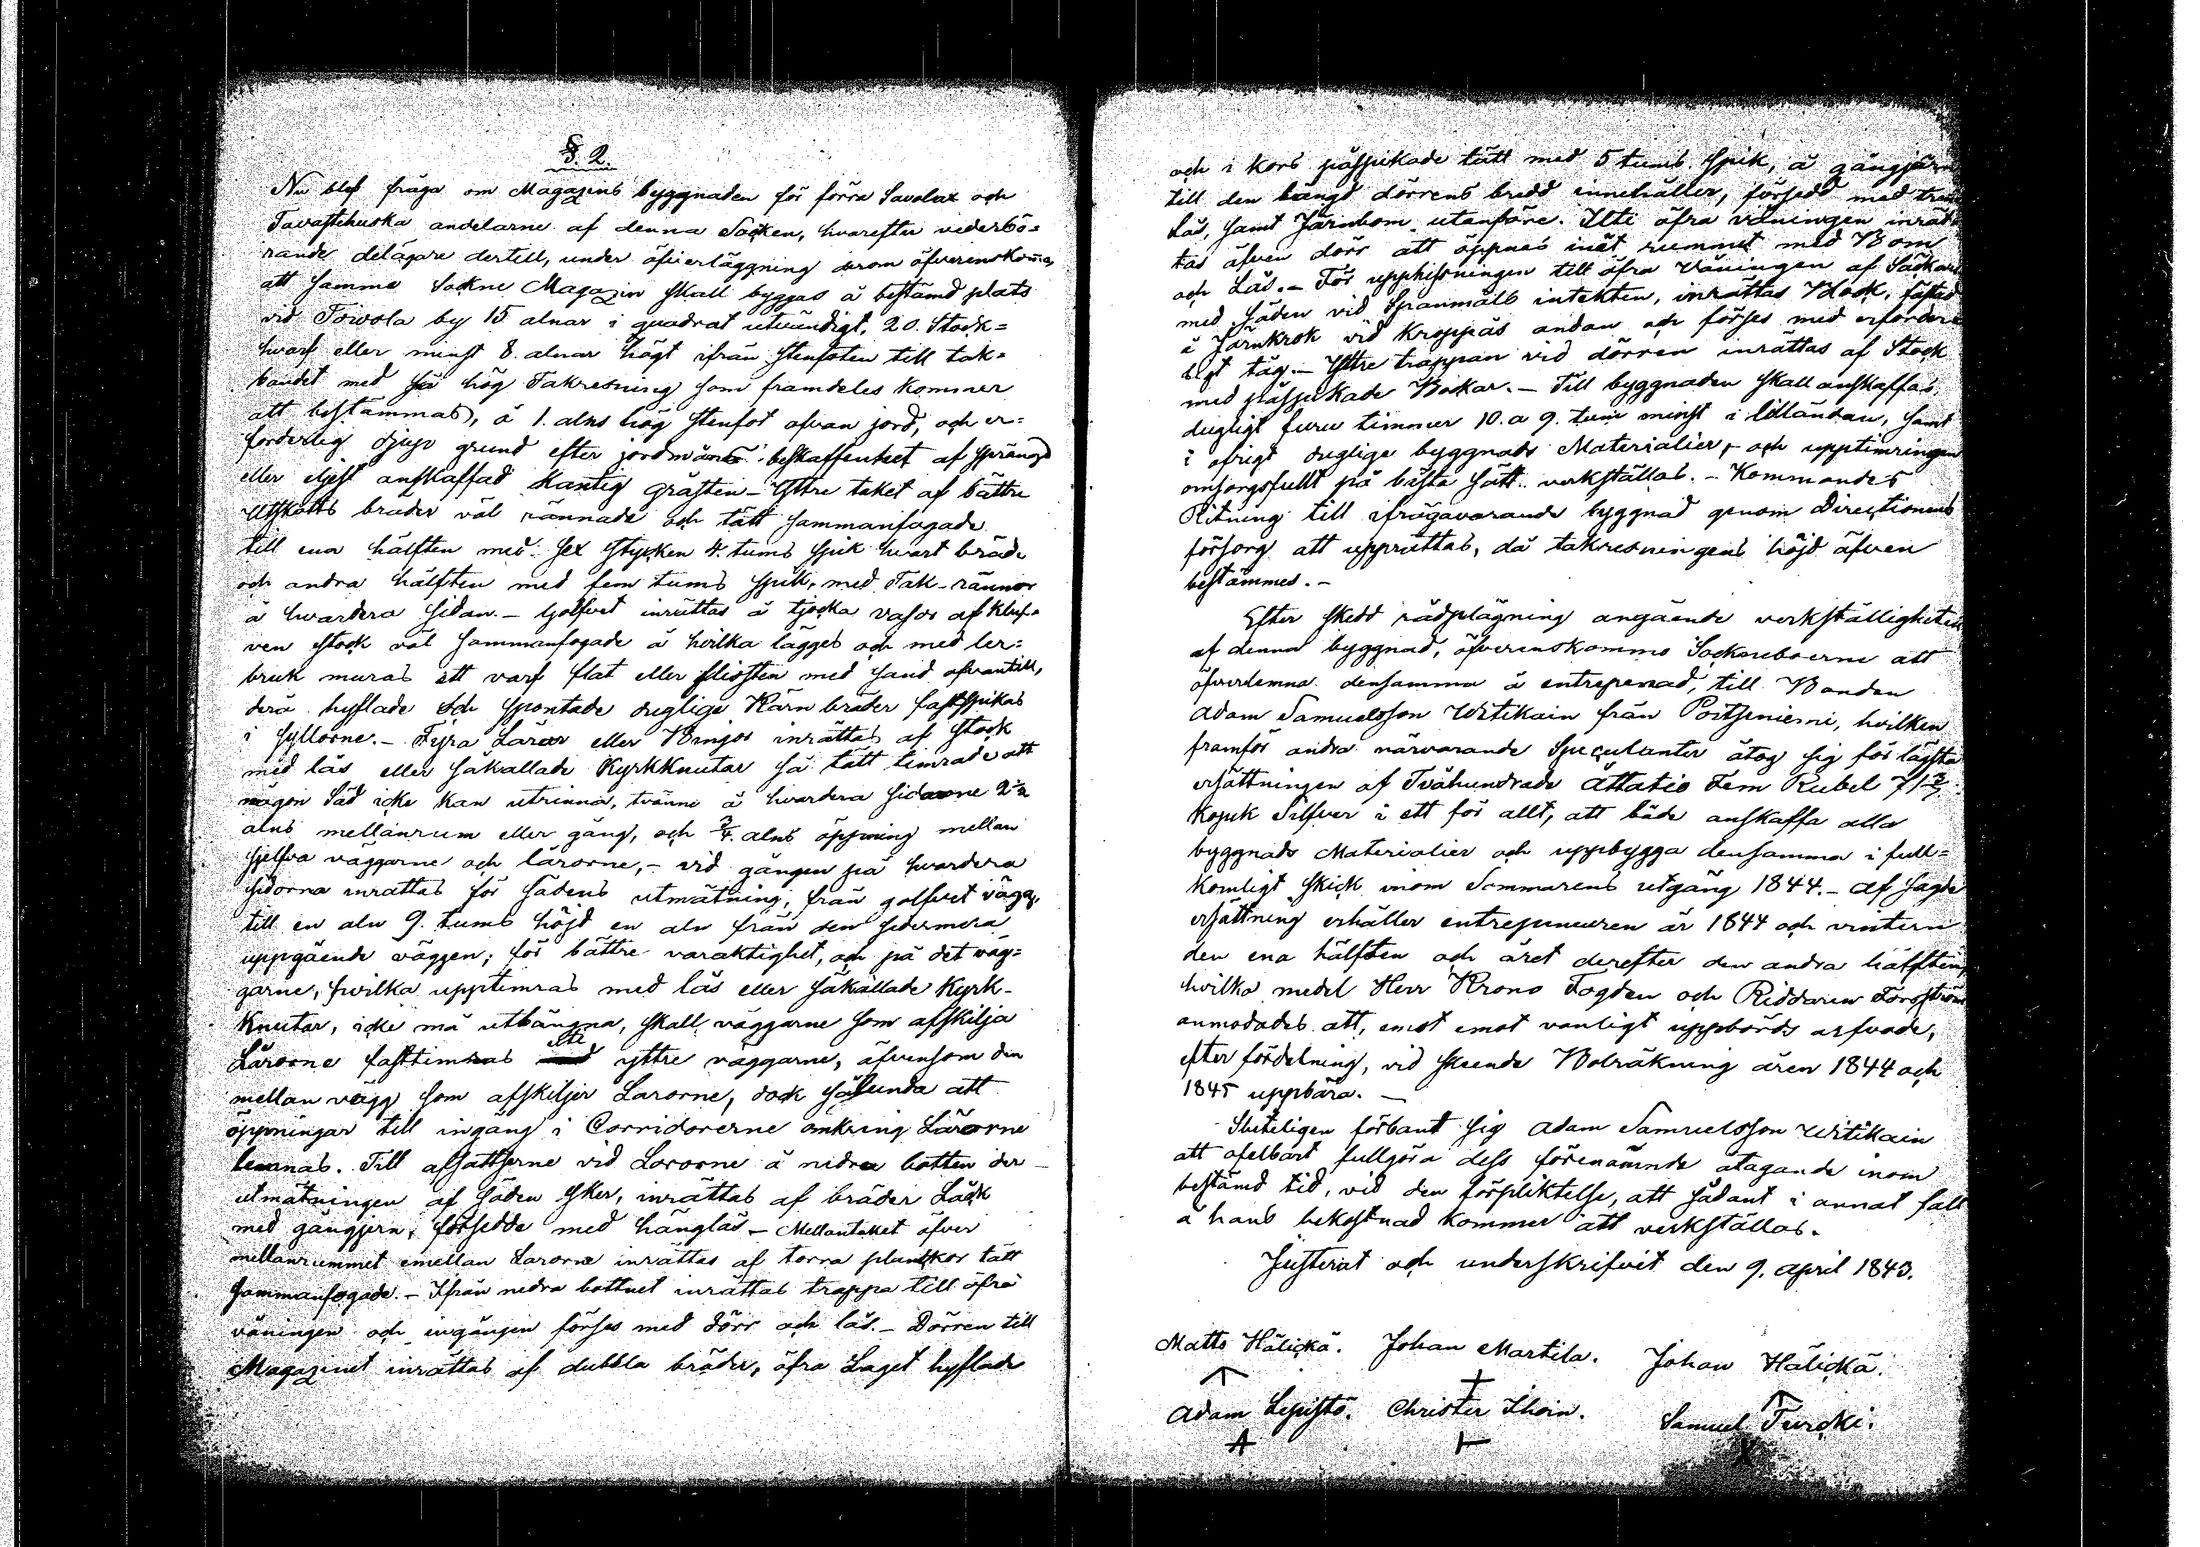 §. 2.
Nu blef fråga om Magazins byggnaden för förra Savolax och
Tavastehuska andelarne af denna Socken, hvarefter vederbö=
rande delägare dertill, under öfverläggning derom öfverenskomma,
att samma Sockne Magazin skall byggas å bestämd plats
vid Toivola by 15 alnar i quadrat utvändigt, 20. Stock=
hvarf eller minst 8. alnar högt ifrån stenfoten till tak=
bandet med så hög Takresning som framdeles kommer
att bestämmas, å 1. alns hög stenfot ofvan jord, och er=
forderlig djup grund efter jordmåns beskaffenhet af sprängd
eller eljest anskaffad kantig gråsten – Yttre taket af bättre
Utskotts bräder väl rännade och tätt sammanfogade
till ena hälften med sex stycken 4. tums spik hvart bräde
och andra hälften med fem tums spik, med Tak-rännor
å hvardera sidan. – Golfvet inrättas å tjocka vasor af kluf=
ven stock väl sammanfogade å hvilka lägges och med ler=
bruk muras ett varf flat eller flissten med sand ofvantill,
derå hyflade och spontade duglige Kärn bräder fastspikas
i syllorne. – Fyra Lårar eller Bingor inrättas af stock
med lås eller såkallade Kyrkknutar så tätt timrade att
någon Säd icke kan utrinna, tvänne å hvardera sidorne 2½
alns mellanrum eller gång, och ¾. alns öppning mellan
sjelfva väggarne och lårorne, – vid gången på hvardera
sidorna inrättas för Sädens utmätning, från golfvet vägg,
till en aln 9. tums höjd en aln från den sedermera
uppgående väggen; för bättre varaktighet, och på det väg=
garne, hvilka upptimras med lås eller såkallade Kyrk-
Knutar, icke må utbångna, skall väggarne som afskilja
Lårorne fasttimras uti yttre väggarne, äfvensom den
mellan vägg som afskiljer Lårorne, dock sålunda att
öppningar till ingång i Corridorerne omkring Lårorne
lemnas. Till afsattserne vid Lårorne å nedra botten der
utmätningen af Säden sker, inrättas af bräder Låck
med gångjern, försedde med hänglås – Mellantaket öfver
mellanrummet emellan Lårorne inrättas af torra planckor tätt
sammanfogade. – Ifrån nedra bottnet inrättas trappa till öfra
våningen och ingången förses med dörr och lås. – Dörren till
Magazinet inrättas af dubbla bräder, öfra Laget hyflade
och i kors påspikade tätt med 5 tums spik, å gångjärn
till den längd dörrens bredd innehåller, försedd med
Lås, samt Järnbom utanföre. Uti öfra våningen inrät
tas äfven dörr att öppnas inåt rummet med Bom
och Lås. – För upphissningen till öfra Våningen af Säckar
med Säden vid Spanmåls intekten, inrättas Block, fästad
i Järnkrok vid kroppås ändan och förses med erforder
ligt tåg. – Yttre trappan vid dörren inrättas af Stock
med påspikade Bockar. – Till byggnaden skall anskaffas,
dugligt furu timmer 10. a 9. tum minst i lilländan, samt
i öfrigt duglige byggnads Materialier, – och upptimringen
omsorgsfullt på bästa sätt verkställas. – Kommandes
Ritning till ifrågavarande byggnad genom Directionens
försorg att upprättas, då takresningens höjd äfven
bestämmes. –
Efter skedd rådplägning angående verkställigheten
af denna byggnad, öfverenskommo Sockneboerne att
öfverlemna densamma å entrepenad, till Bonden
Adam Samuelsson Uitikain från Portsenierni, hvilken
framför andra närvarande Speculanter åtog sig för lägsta
ersättningen af Tvåhundrade Åttatio Fem Rubel 71 3/7
kopek Silfver i ett för allt, att både anskaffa alla
byggnads Materialier och uppbygga densamma i full=
komligt skick inom Sommarens utgång 1844. – Af sagde
ersättning erhåller entrepeneuren år 1844 och vintern
den ena hälften och året derefter den andra hälften,
hvilka medel Herr Krono Fogden och Riddaren Forsström
anmodades att, emot emot vanligt uppbörds arfvode,
efter fördelning, vid skeende Bolräkning åren 1844 och
1845 uppbära. –
Sluteligen förbant sig Adam Samuelsson Uitikain
att ofelbart fullgöra dess förenämnde åtagande inom
bestämd tid, vid den förpliktelse, att sådant i annat fall
å hans bekostnad kommer att verkställas.
Justerat och underskrifvit den 9. april 1843.
Matts Hälickä. Johan Martila. Johan Hälickä.
Adam Lepistö. Christer Ihoin. Samuel Turcki.